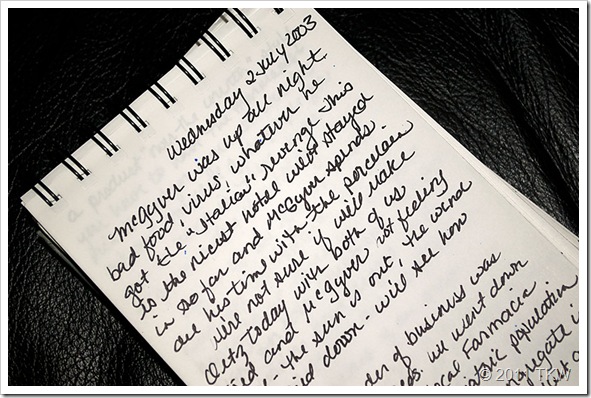 Wednesday 2 July 2003
McGyver was up all night
bad food, virus, whatever he
got the "Italian" revenge. This
is the nicest hotel we've stayed
in so far and McGyver spends
all his time with the porcelain
We're not sure if we'll make
today with both of us
and McGyver not feeling
the sun is out, the wind
down - will see how
of business was
we went down
local Farmacia
population
© 2011 TKW